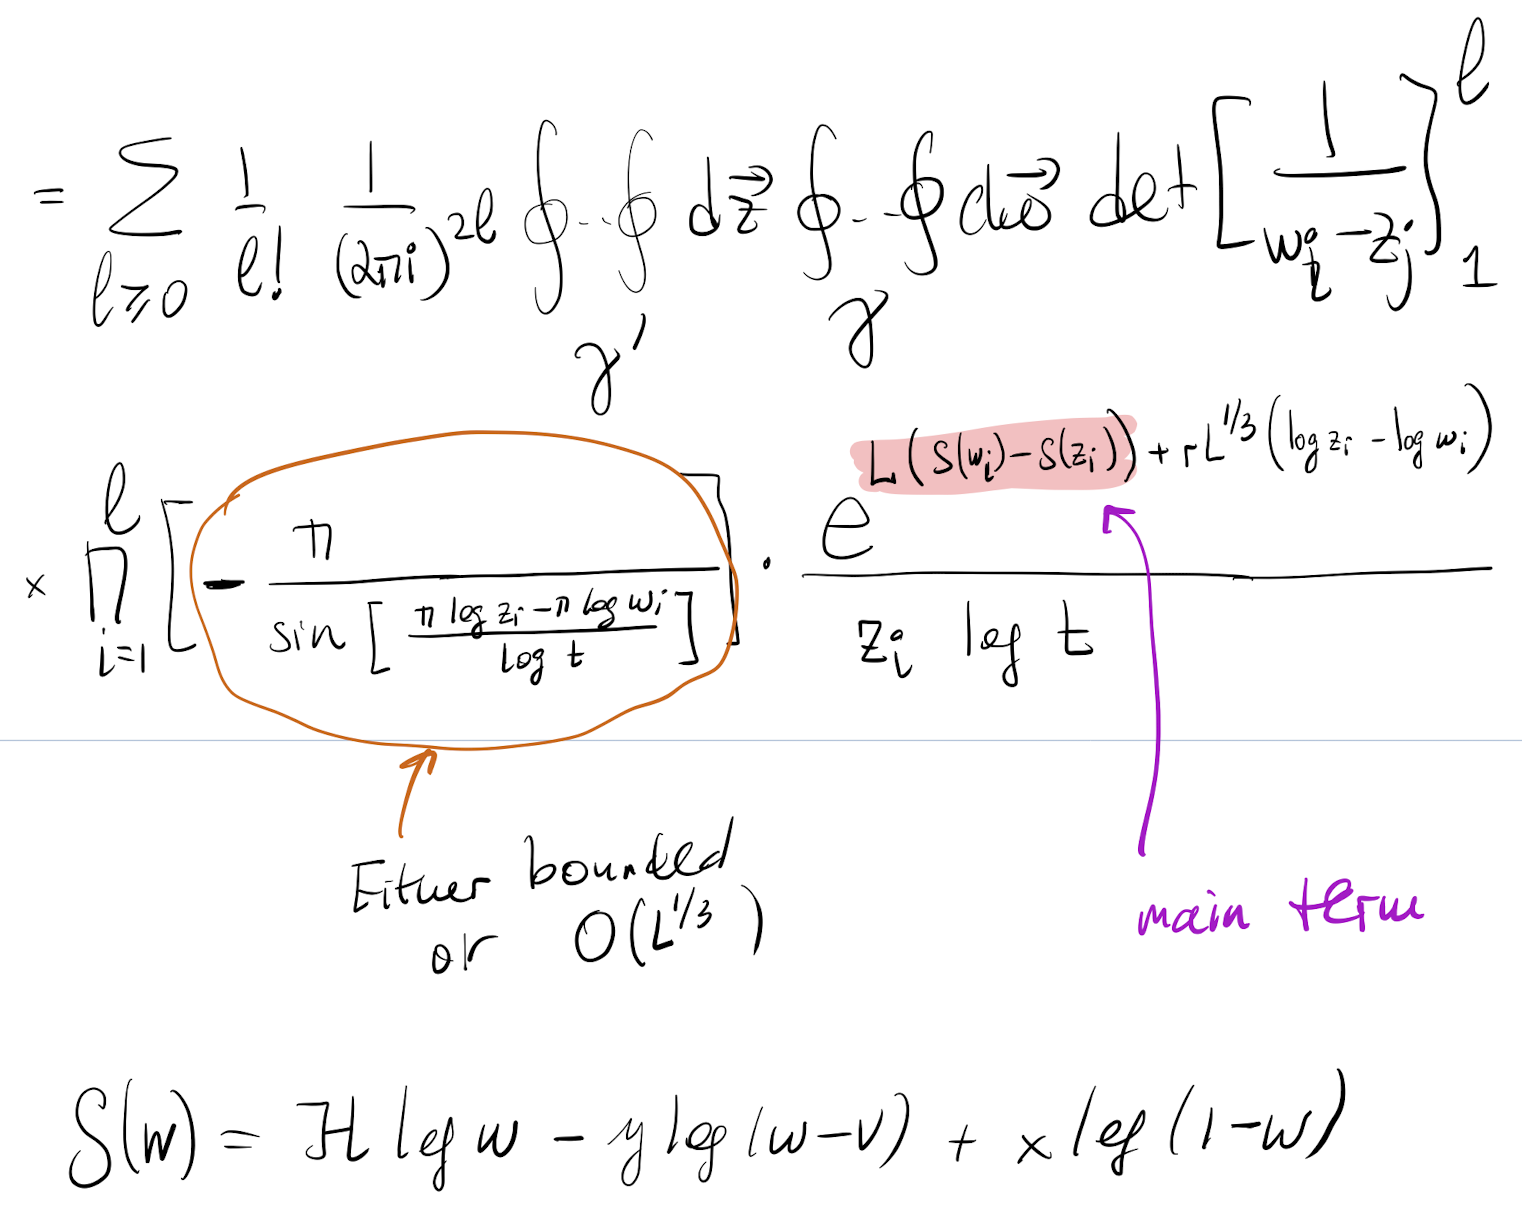 = ∑_{ℓ≥0} 1/ℓ! 1/(2πi)^{2ℓ} ∮··∮_{γ'} d\vec{z} ∮··∮_{γ} d\vec{w} det [ 1/(w_i − z_j) ]_1^ℓ
× ∏_{i=1}^ℓ [ − π / sin[ (π log z_i − π log w_i) / log t ] ] · e^{L(S(w_i) − S(z_i)) + r L^{1/3} (log z_i − log w_i)} / (z_i log t)
Either bounded
or O(L^{1/3})
main term
S(w) = ℋ log w − y log(w − v) + x log(1 − w)